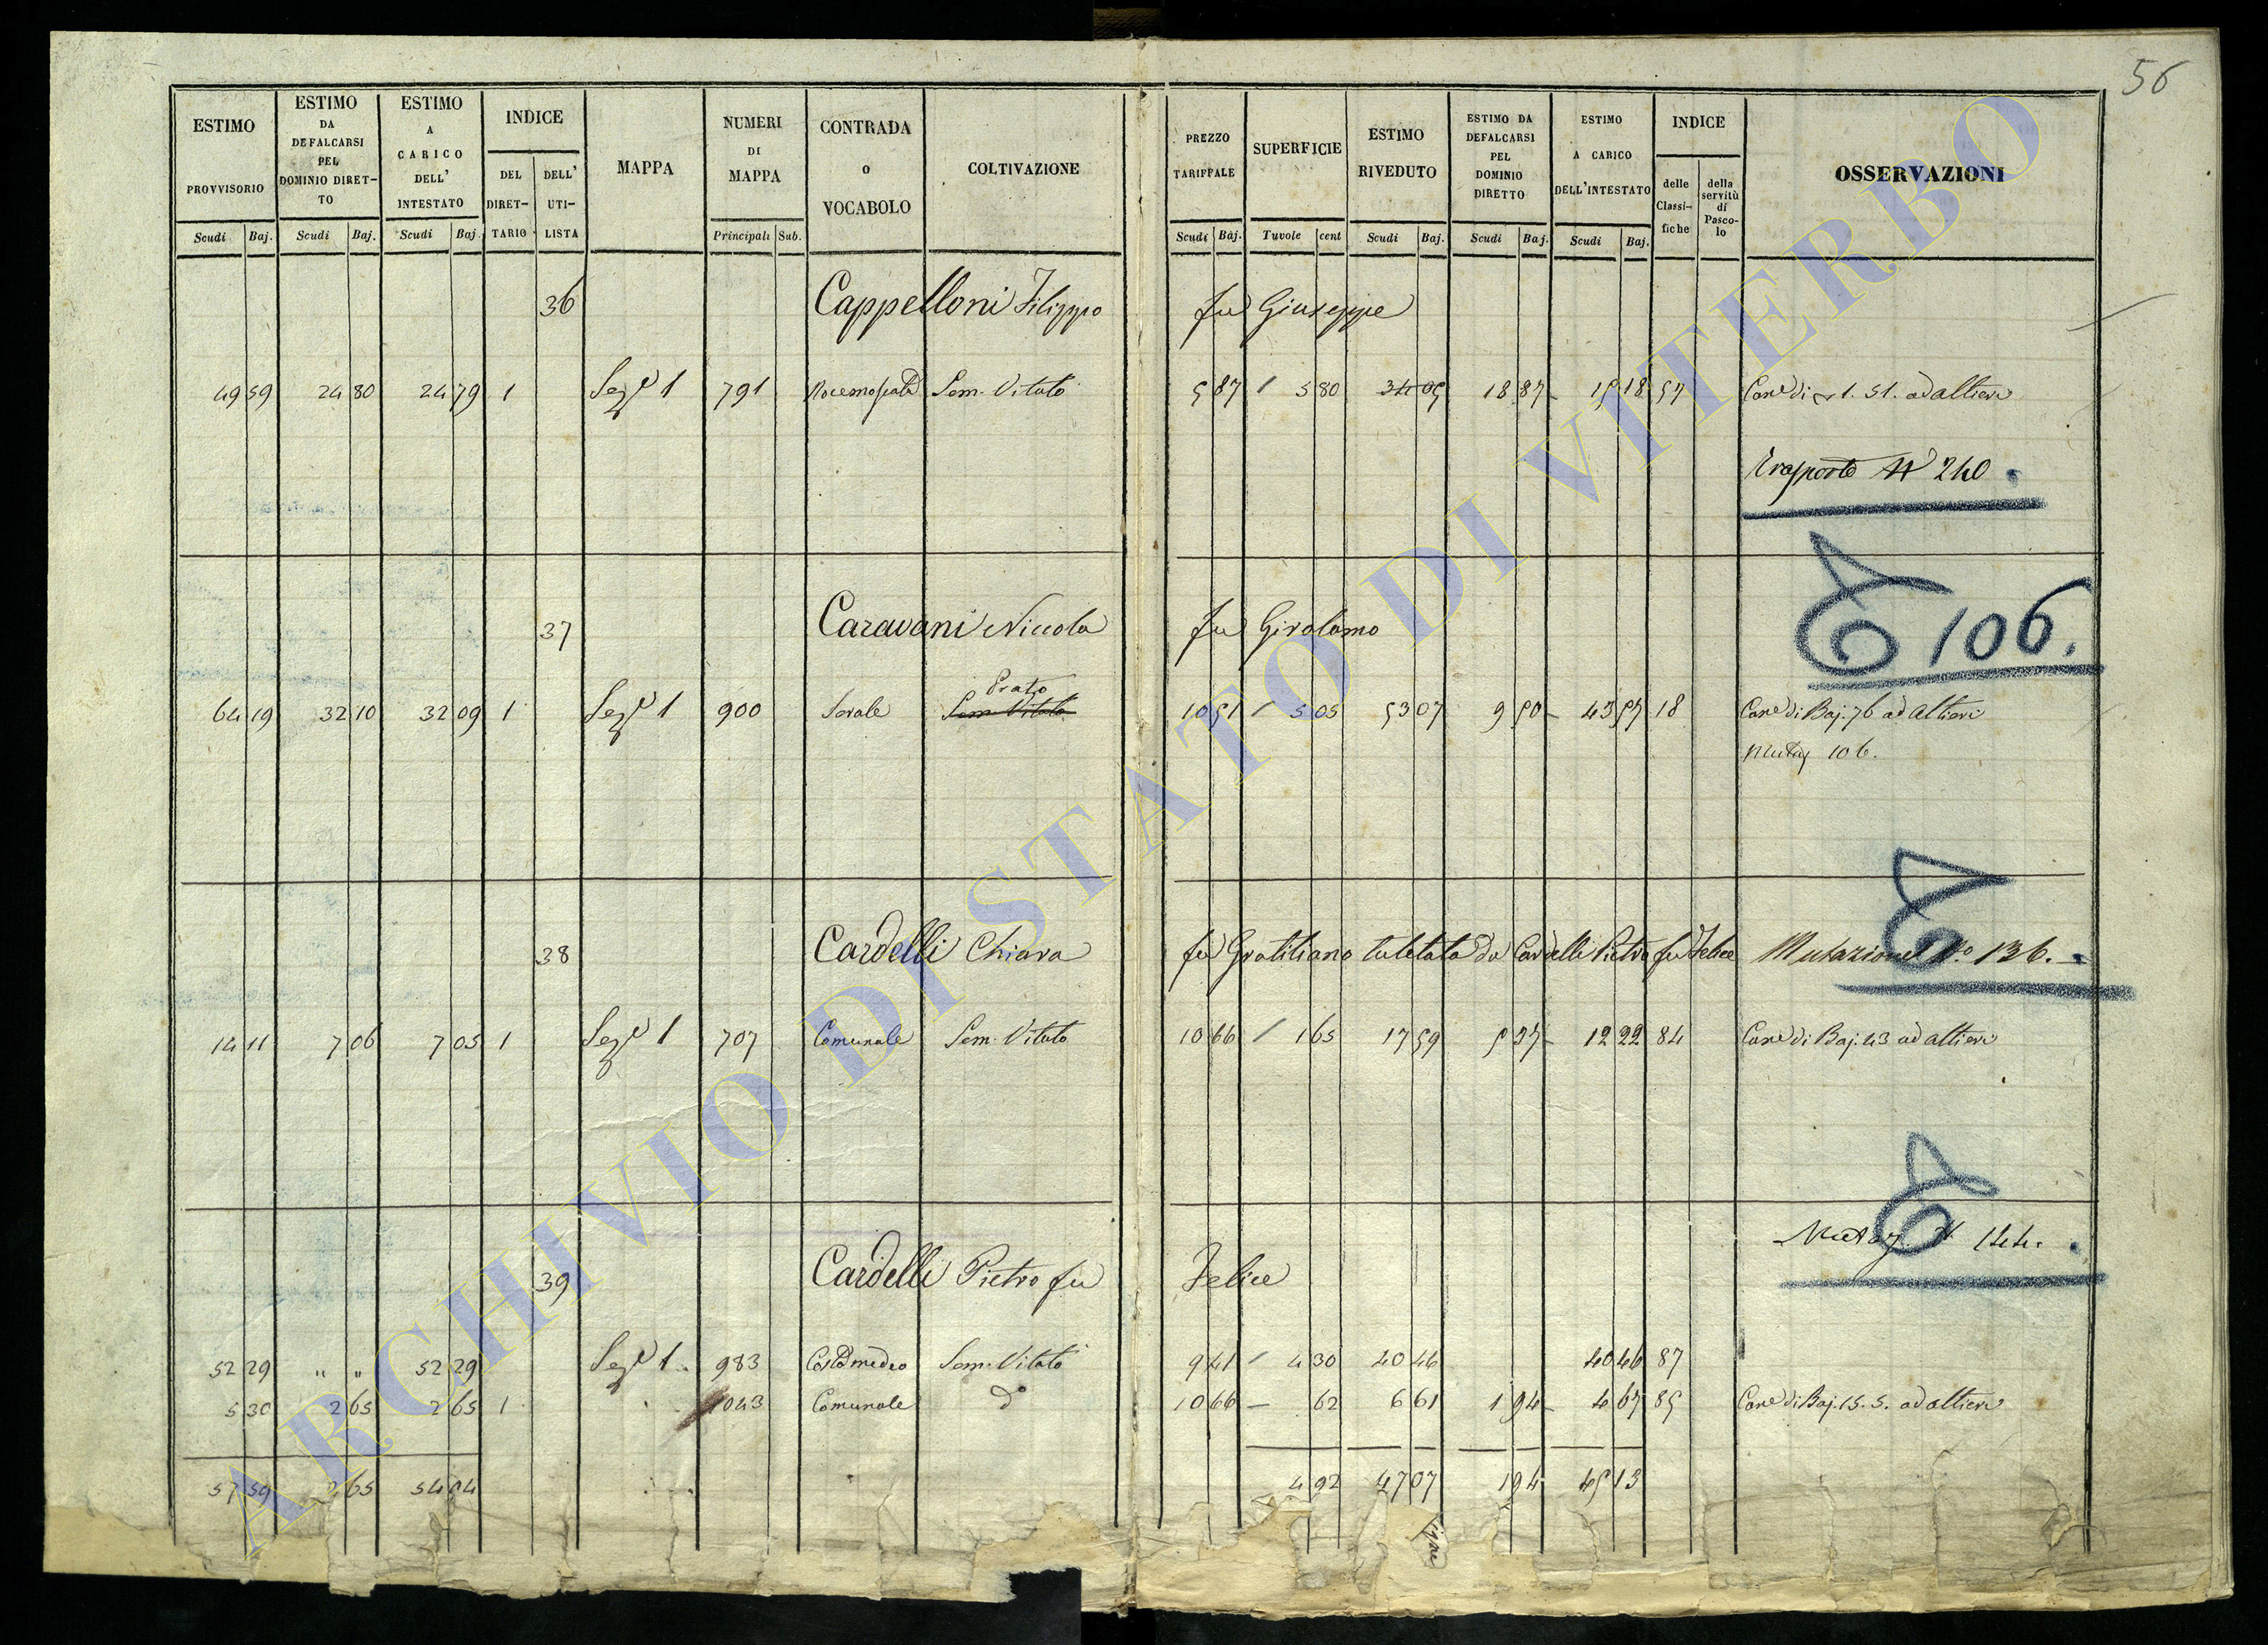 56
ESTIMO PROVVISORIO Scudi Baj.
ESTIMO DA DEFALCARSI PEL DOMINIO DIRET-TO Scudi Baj.
ESTIMO A CARICO DELL' INTESTATO Scudi Baj.
INDICE DEL DIRET-TARIO DELL' UTI-LISTA
MAPPA
NUMERI DI MAPPA Principali Sub.
CONTRADA o VOCABOLO
COLTIVAZIONE
PREZZO TARIFFALE Scudi Baj.
SUPERFICIE Tavole cent
ESTIMO RIVEDUTO Scudi Baj.
ESTIMO DA DEFALCARSI PEL DOMINIO DIRETTO Scudi Baj.
ESTIMO A CARICO DELL'INTESTATO Scudi Baj.
INDICE delle Classi-fiche della servitù di Pasco-lo
OSSERVAZIONI
36 Cappelloni Filippo fu Giuseppe
49 59 24 80 24 79 1 Sez.e 1 791 Sem. Vitato 5 87 5 80 34 05 18 87 15 18 57 1. 51. ad Altieri
Trasporto N 240
37 Caravani Niccola fu Girolamo
106.
Prato
64 19 32 10 32 09 1 Sez.e 1 900 Sem. Vitato 10 51 5 05 53 07 9 50 43 57 18 Can.e di Baj. 76 ad Altieri
Mutaz 106.
38 Cardelli Chiara fu Gratiliano tutelata da Cardelli Pietro fu Felice Mutazione N.o 136.
14 11 7 06 7 05 1 Sez.e 1 707 Comunale Sem. Vitato 10 66 1 65 17 59 5 37 12 22 84 Can.e di Baj. 43 ad Altieri
Mutaz. N 144.
39 Cardelli Pietro fu Felice
52 29 " " 52 29 Sez.e 1 983 Sem. Vitato 9 41 4 30 40 46 40 46 87
5 30 2 65 2 65 1 1043 Comunale d.o 10 66 62 6 61 1 94 4 67 85 Can.e di Baj. 15. 5. ad Altieri
57 59 2 65 54 94 4 92 47 07 1 94 45 13
ARCHIVIO DI STATO DI VITERBO